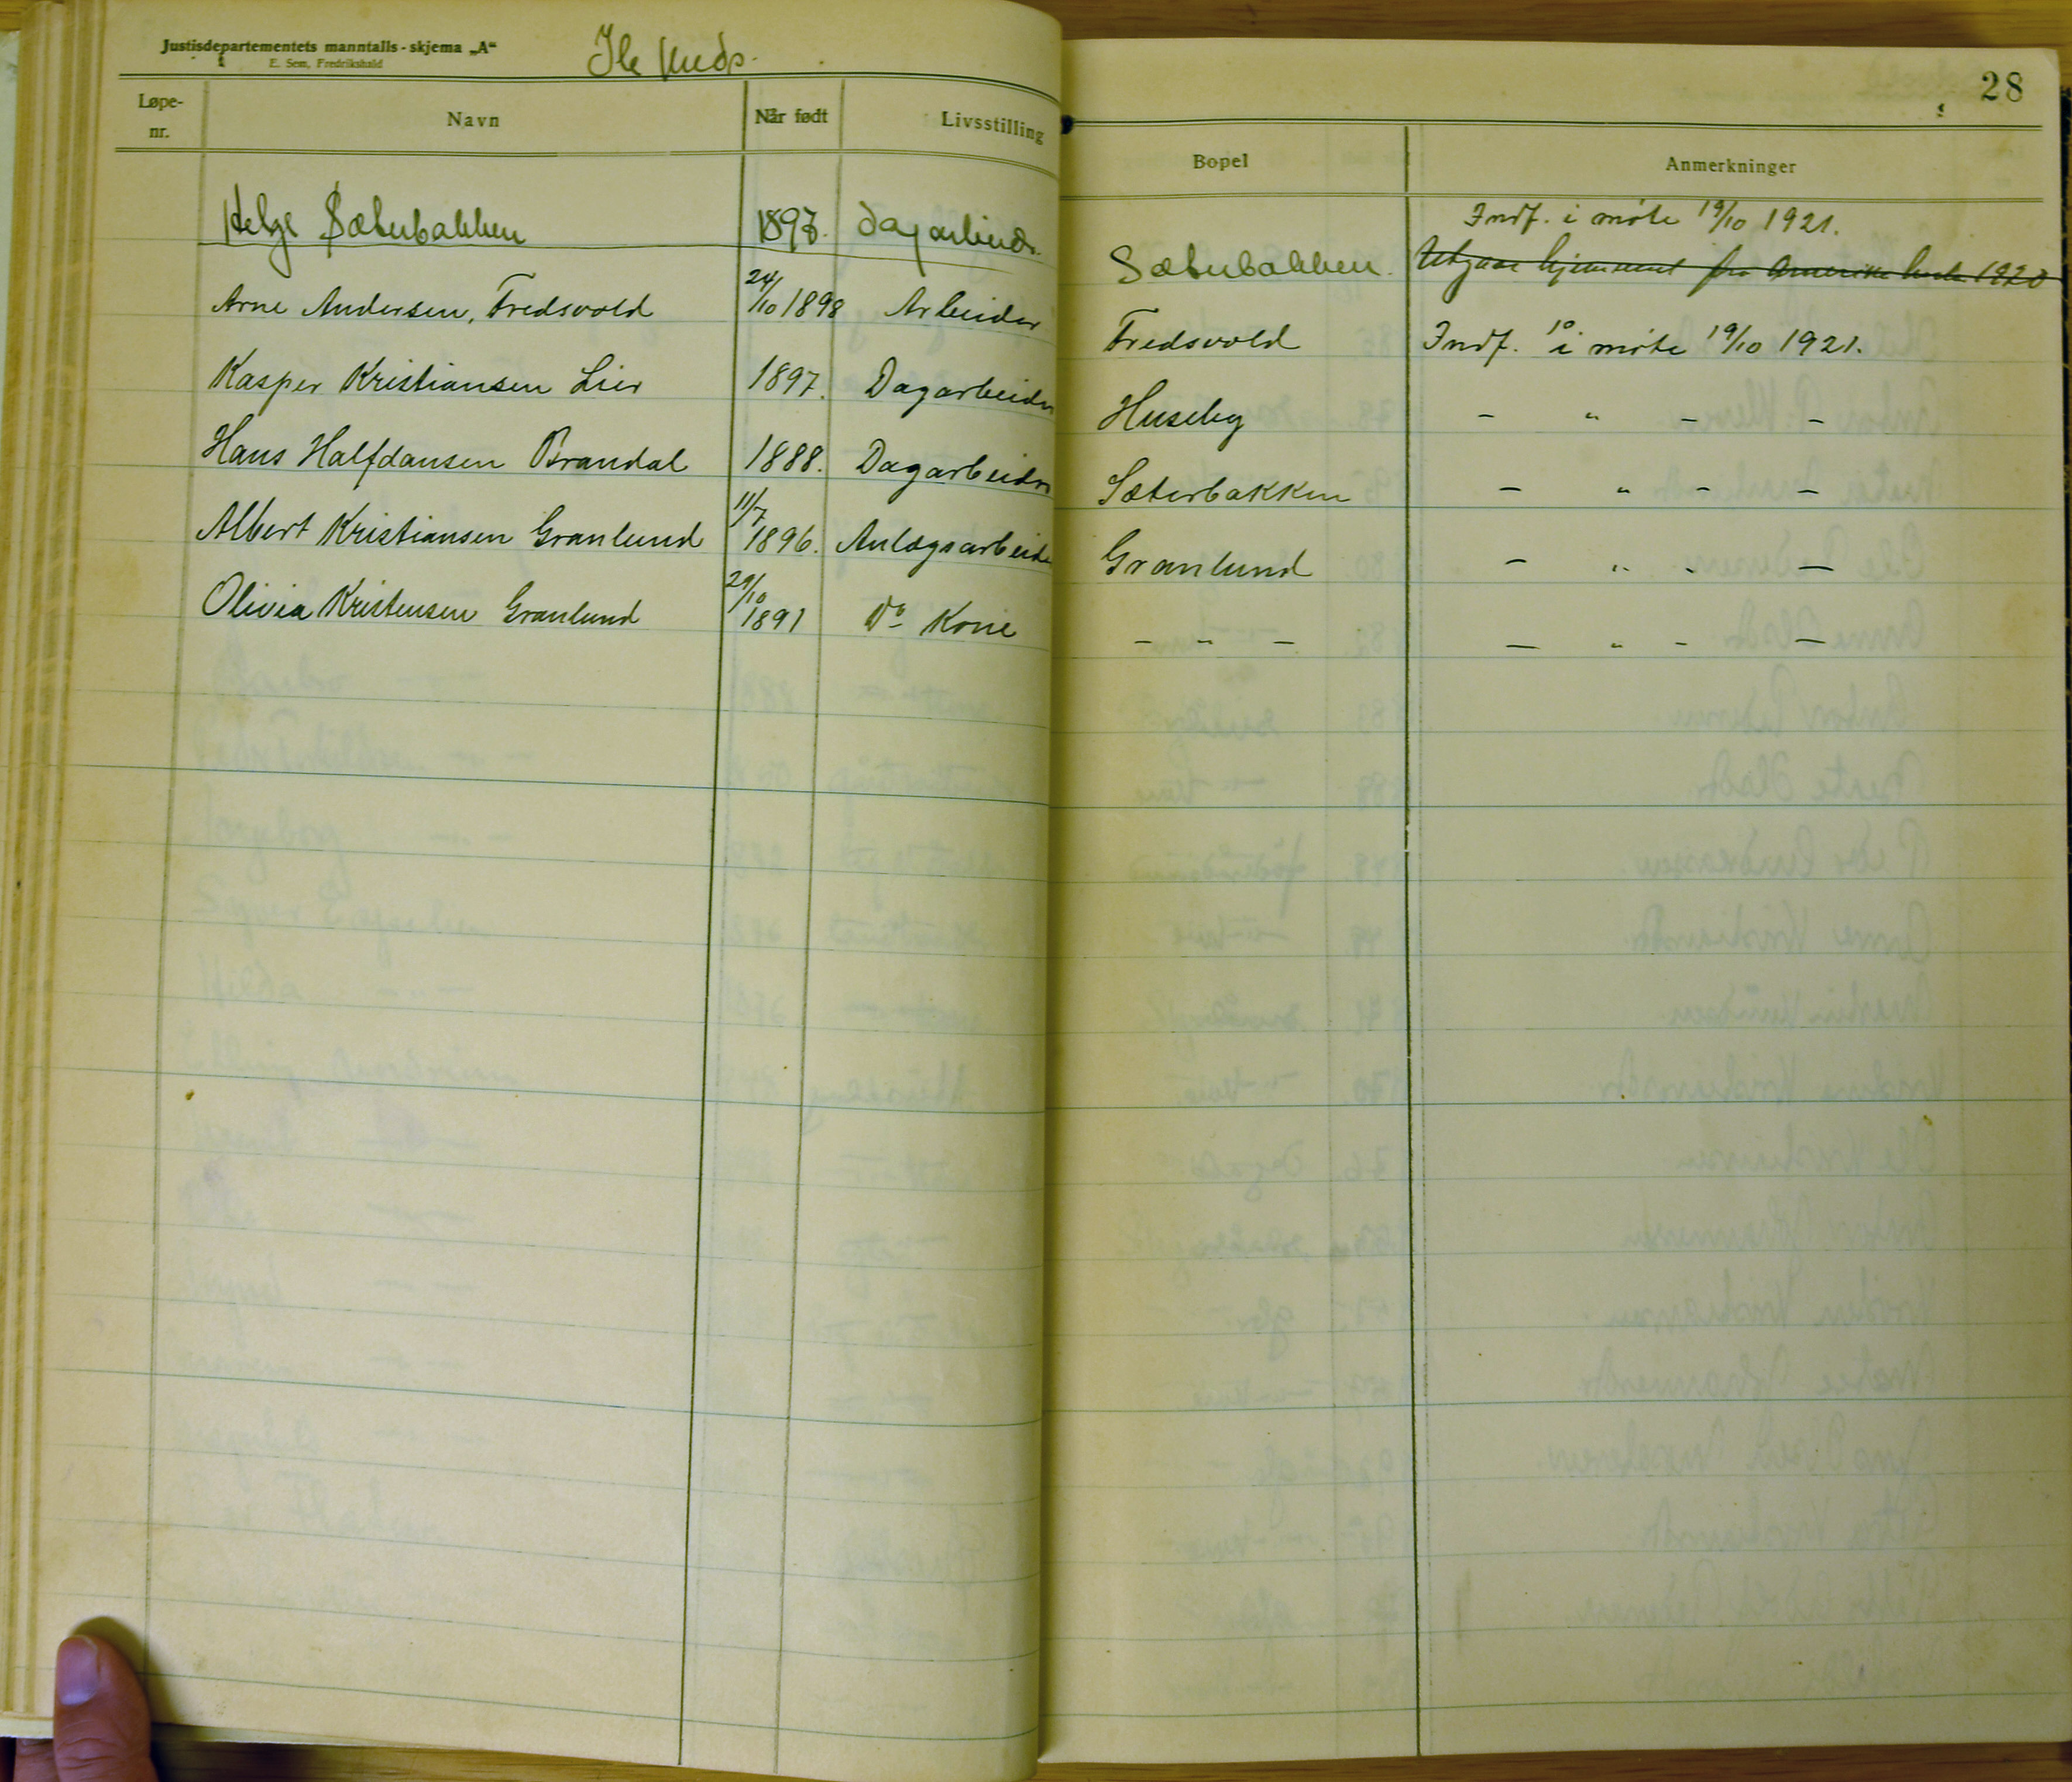 Justisdepartementets manntalls-skjema „A“
E. Sem, Fredrikshald
28
Løpe-nr. Navn Når født Livsstilling Bopel Anmerkninger
Indf. i møte 19/10 1921.
Helge Sæterbakken 1897. Dagarbeider Sæterbakken. fra Amerika 1920
Arne Andersen, Fredsvold 24/10 1898 Arbeider Fredsvold Indf. i møte 19/10 1921.
Kasper Kristiansen Lier 1897. Dagarbeider Huseby - " - -
Hans Halfdansen Brandal 1888. Dagarbeider Sæterbakken - " - -
Albert Kristiansen Granlund 11/7 1896. Anlægsarbeide Granlund - " - -
Olivia Kristensen Granlund 29/10 1891 Do Kone - " - - " - -